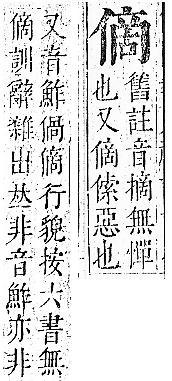 舊註音摘無憚
也又傃惡也
又音鮮行貌按六書無
訓辭雜出𠀤非音鮮亦非